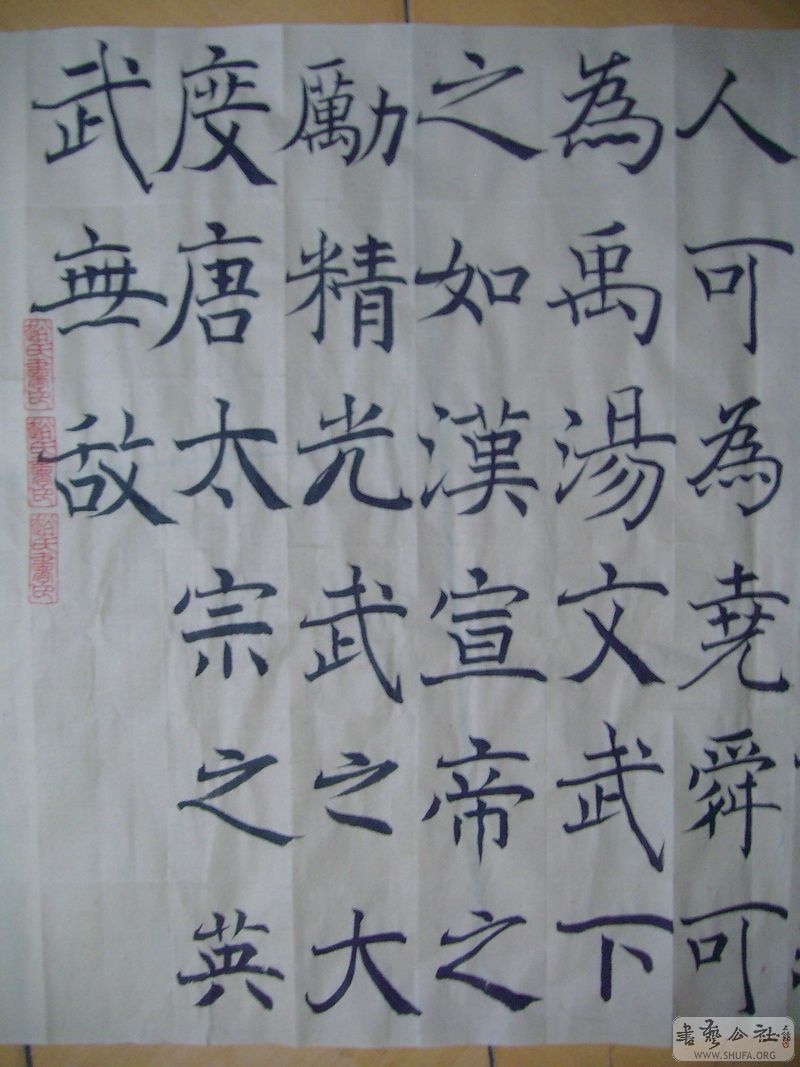 人可為堯舜可
為禹湯文武下
之如漢宣帝之
勵精光武之大
度唐太宗之英
武無敌
書藝公社
WWW.SHUFA.ORG